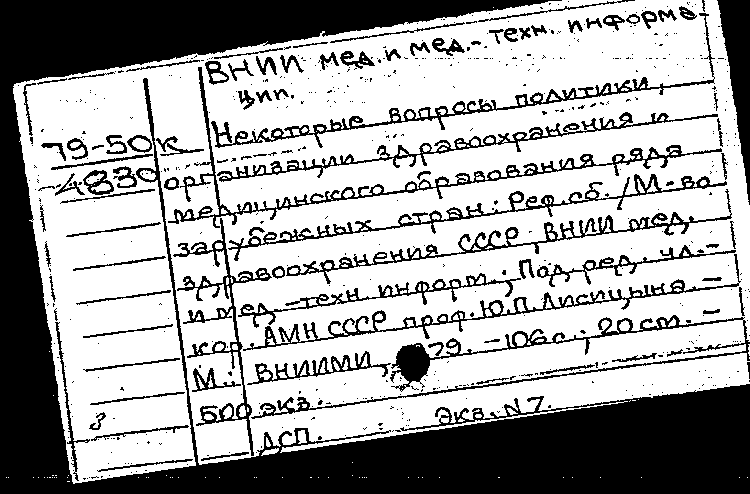 ВНИИ мед. и мед.-техн. информа-
ции.
79-50к Некоторые вопросы политики,
4830 организации здравоохранения и
медицинского образования ряда
зарубежных стран: Реф. сб. /М-во
здравоохранения СССР, ВНИИ мед.
и мед.-техн. информ.; Под ред. чл.-
кор. АМН СССР проф. Ю.П. Лисицына. -
М.: ВНИИМИ, 79. - 106 с.; 20 см. -
500 экз.
3
ДСП. Экз. N7.